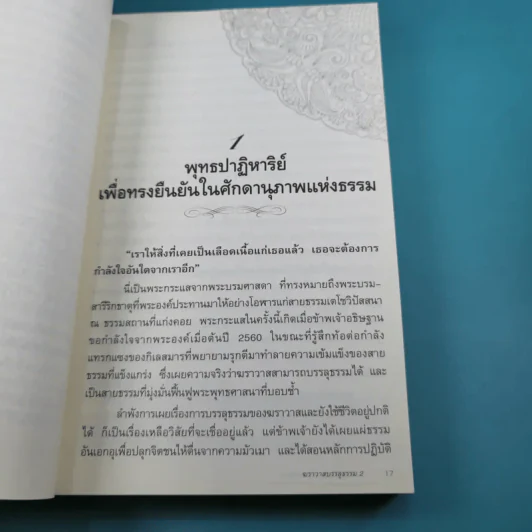 1
พุทธปาฏิหาริย์
เพื่อทรงยืนยันในศักดานุภาพแห่งธรรม
“เราให้สิ่งที่เคยเป็นเลือดเนื้อแก่เธอแล้ว เธอจะต้องการ
กำลังใจอันใดจากเราอีก”
นี่เป็นพระกระแสจากพระบรมศาสดา ที่ทรงหมายถึงพระบรม-
สารีริกธาตุที่พระองค์ประทานมาให้อย่างโอฬารแก่สายธรรมเตโชวิปัสสนา
ณ ธรรมสถานที่แก่งคอย พระกระแสในครั้งนี้เกิดเมื่อข้าพเจ้าอธิษฐาน
ขอกำลังใจจากพระองค์เมื่อต้นปี 2560 ในขณะที่รู้สึกท้อต่อกำลัง
แทรกแซงของกิเลสมารที่พยายามรุกคืบมาทำลายความเข้มแข็งของสาย
ธรรมที่แข็งแกร่ง ซึ่งเผยความจริงว่าฆราวาสสามารถบรรลุธรรมได้ และ
เป็นสายธรรมที่มุ่งมั่นฟื้นฟูพระพุทธศาสนาที่บอบช้ำ
ลำพังการเผยเรื่องการบรรลุธรรมของฆราวาสและยังใช้ชีวิตอยู่ปกติ
ได้ ก็เป็นเรื่องเหลือวิสัยที่จะเชื่ออยู่แล้ว แต่ข้าพเจ้ายังได้เผยแผ่ธรรม
อันเอกอุเพื่อปลุกจิตชนให้ตื่นจากความมัวเมา และได้สอนหลักการปฏิบัติ
ฆราวาสบรรลุธรรม 2 17